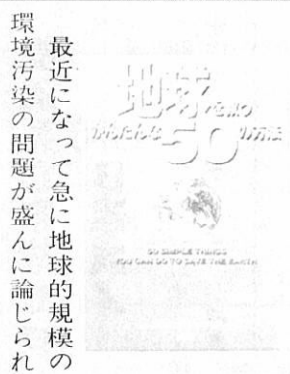 最近になって急に地球的規模の
環境汚染の問題が盛んに論じられ
地球を救う
かんたんな50の方法
50 SIMPLE THINGS
YOU CAN DO TO SAVE THE EARTH